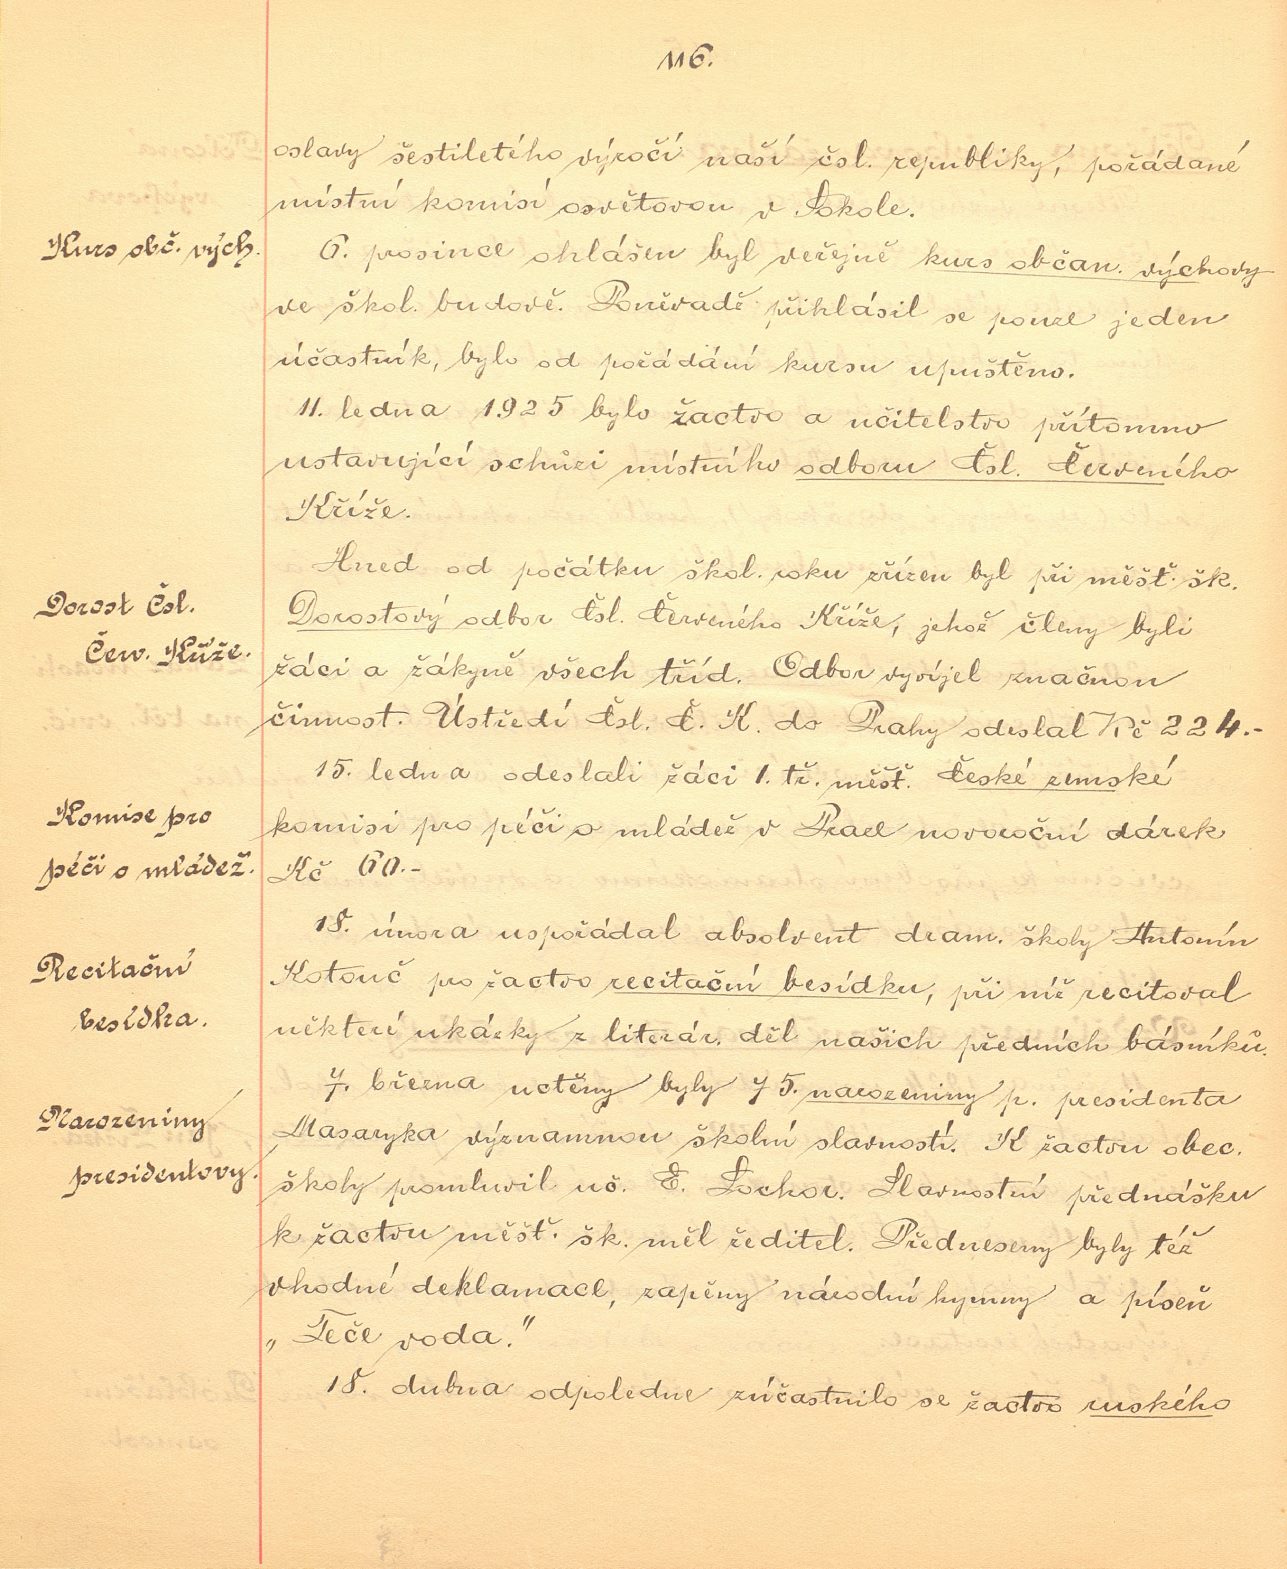 116.
oslavy šestiletého výročí naší čsl. republiky, pořádané
místní komisí osvětovou v Sokole.
Kurs obč. vých.
6. prosince ohlášen byl veřejně kurs občan. výchovy
ve škol. budově. Poněvadž přihlásil se pouze jeden
účastník, bylo od pořádání kursu upuštěno.
11. ledna 1925 bylo žactvo a učitelstvo přítomno
ustavující schůzi místního odboru Čsl. Červeného
Kříže.
Hned od počátku škol. roku zřízen byl při měšť. šk.
Dorost Čsl.
Červ. Kříže.
Dorostový odbor Čsl. Červeného Kříže, jehož členy byli
žáci a žákyně všech tříd. Odbor vyvíjel značnou
činnost. Ústředí Čsl. Č. K. do Prahy odeslal Kč 224.-
15. ledna odeslali žáci 1. tř. měšť. České zemské
Komise pro
péči o mládež.
komisi pro péči o mládež v Praze novoroční dárek
Kč 60.-
18. února uspořádal absolvent dram. školy Antonín
Recitační
besídka.
Kotouč pro žactvo recitační besídku, při níž recitoval
některé ukázky z literár. děl našich předních básníků.
7. března uctěny byly 75. narozeniny p. presidenta
Narozeniny
presidentovy.
Masaryka významnou školní slavností. K žactvu obec.
školy promluvil uč. E. Lochor. Slavnostní přednášku
k žactvu měšť. šk. měl ředitel. Předneseny byly též
vhodné deklamace, zapěny národní hymny a píseň
„Teče voda."
18. dubna odpoledne zúčastnilo se žactvo ruského